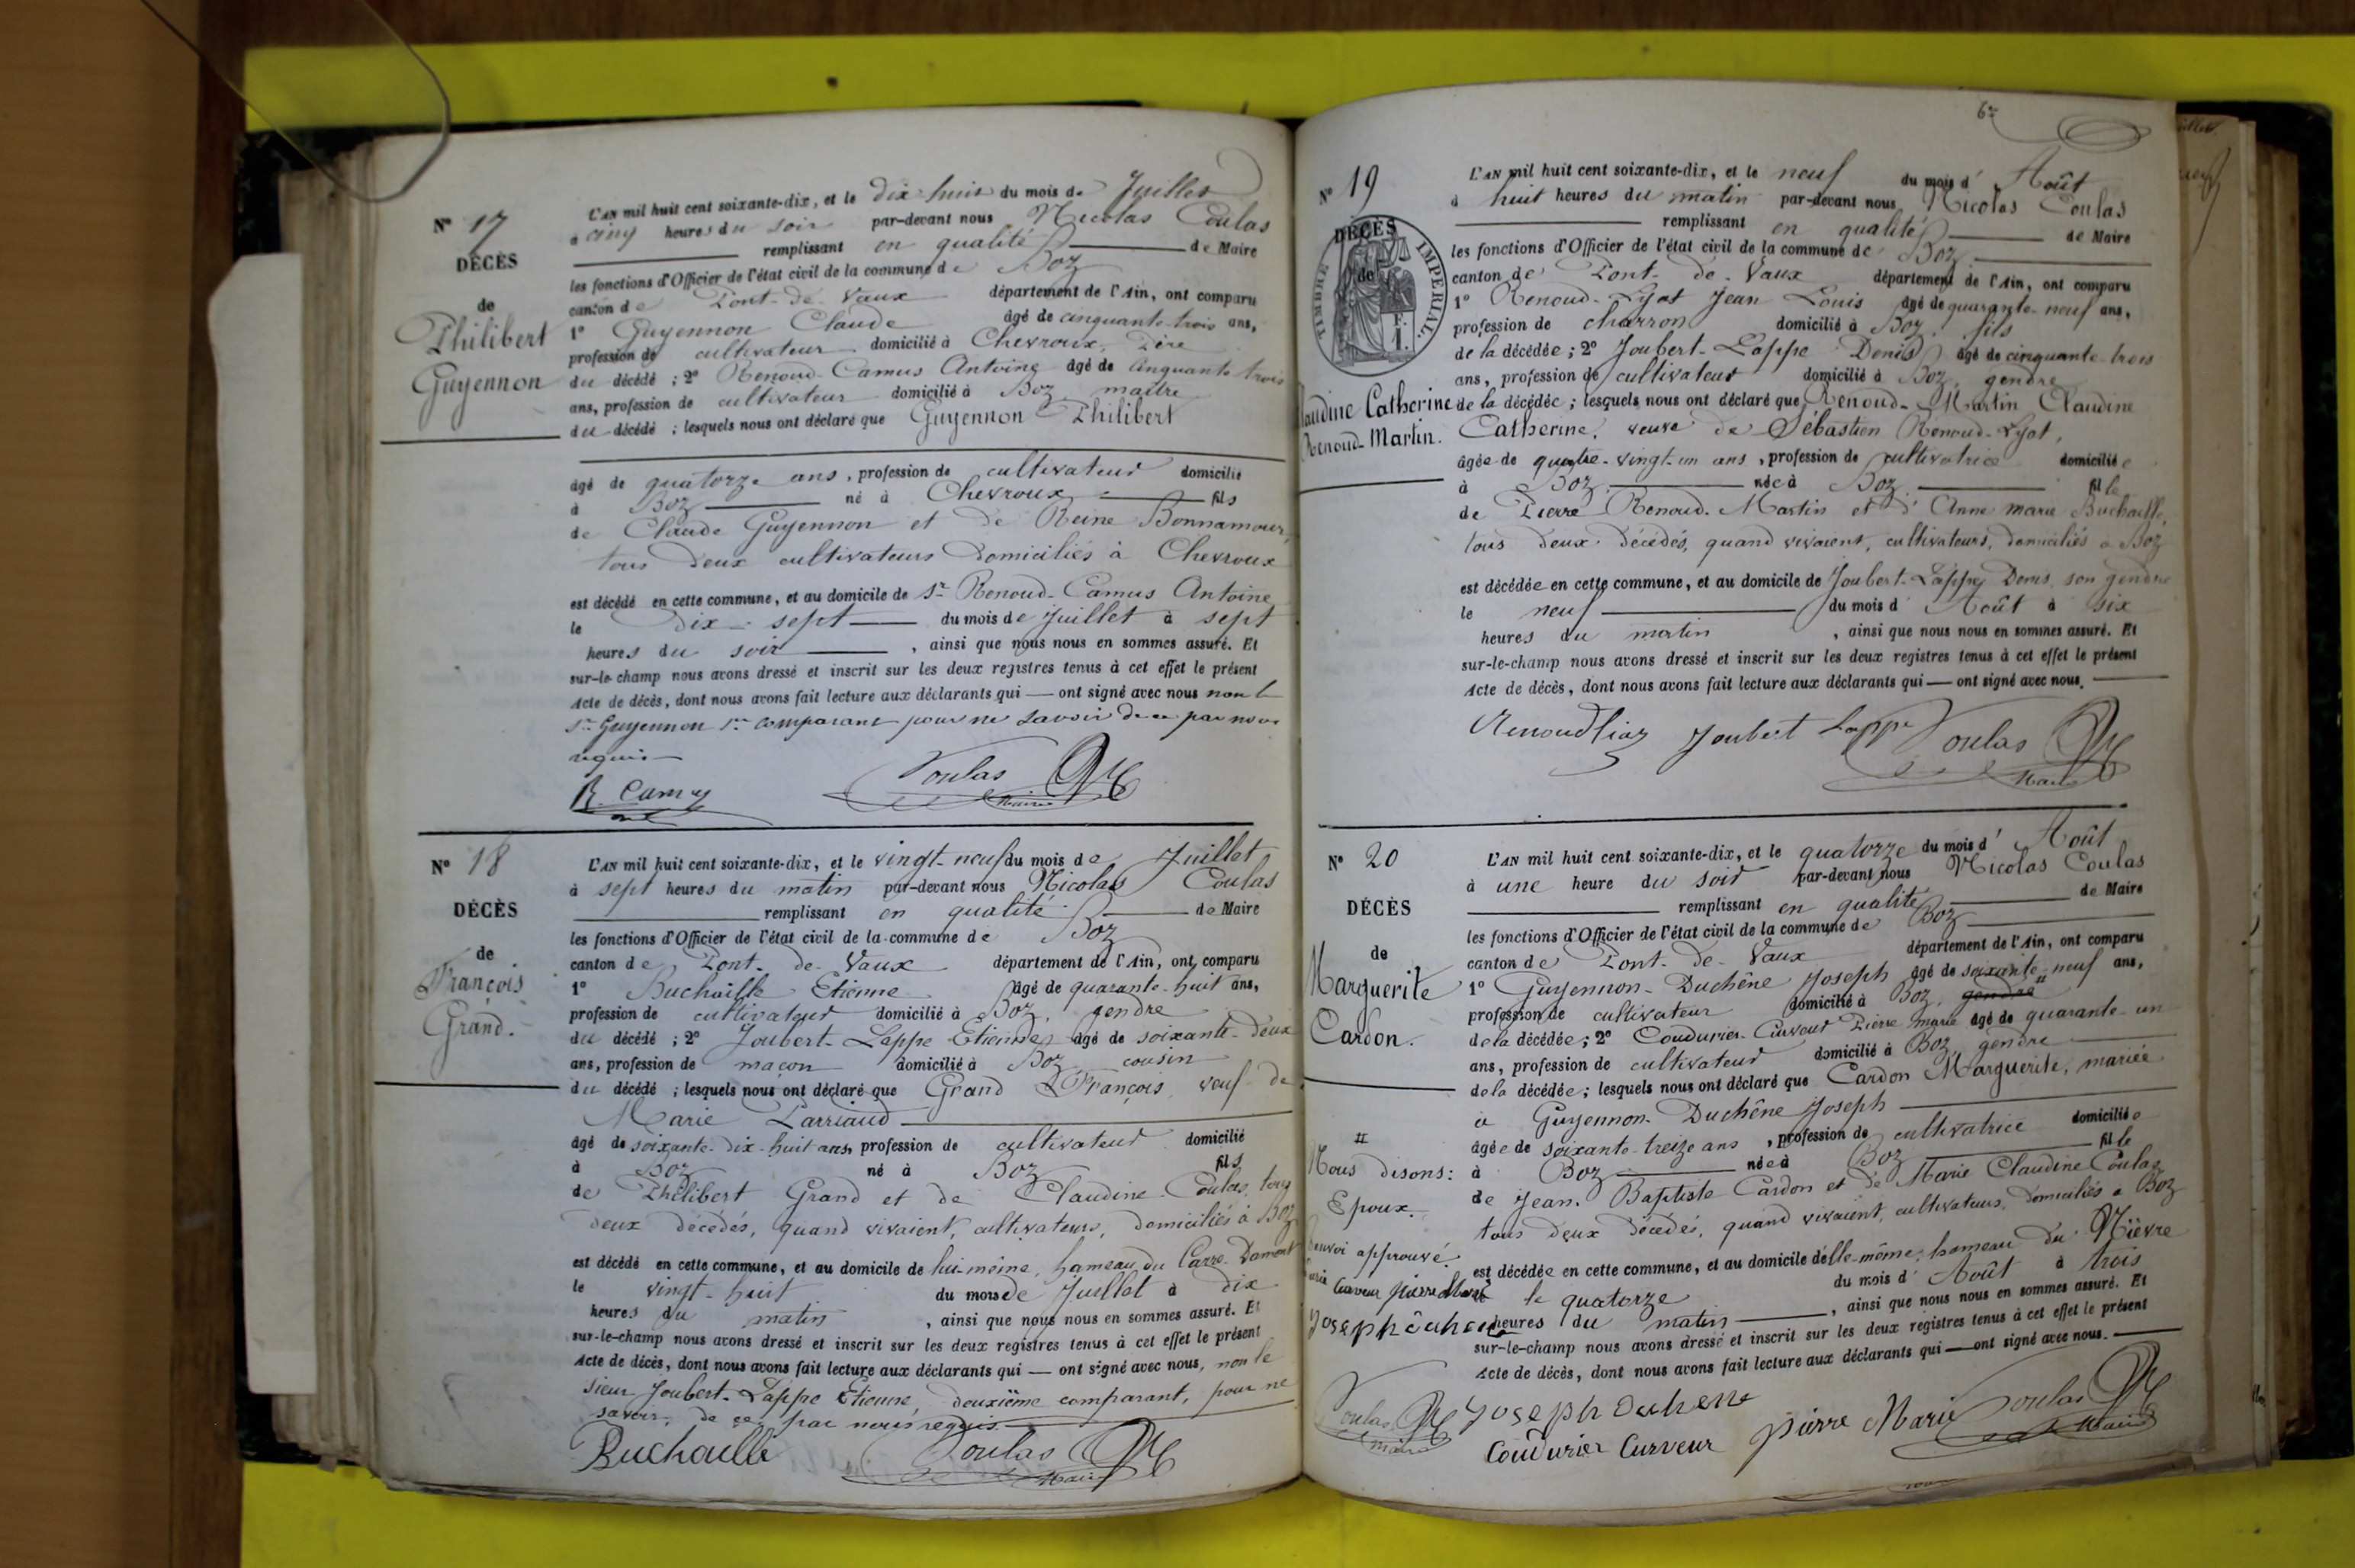 N° 17
DÉCÈS
de
Philibert
Guyennon
L'AN mil huit cent soixante-dix, et le dix huit du mois de Juillet
à cinq heures du soir par-devant nous Nicolas Coulas
remplissant en qualité de Maire
les fonctions d'Officier de l'état civil de la commune de Boz
canton de Pont-de-Vaux département de l'Ain, ont comparu
1° Guyennon Claude âgé de cinquante-trois ans,
profession de cultivateur domicilié à Chevroux, Père
du décédé ; 2° Renoud-Camus Antoine âgé de cinquante trois
ans, profession de cultivateur domicilié à Boz, maître
du décédé ; lesquels nous ont déclaré que Guyennon Philibert
âgé de quatorze ans, profession de cultivateur domicilié
à Boz né à Chevroux fils
de Claude Guyennon et de Reine Bonnamour,
tous deux cultivateurs domiciliés à Chevroux
est décédé en cette commune, et au domicile de Sr Renoud-Camus Antoine
le dix-sept du mois de Juillet à sept
heures du soir, ainsi que nous nous en sommes assuré. Et
sur-le-champ nous avons dressé et inscrit sur les deux registres tenus à cet effet le présent
Acte de décès, dont nous avons fait lecture aux déclarants qui — ont signé avec nous non le
Sr Guyennon 1er comparant pour ne savoir de ce par nous
requis
R. Camus Coulas Maire
N° 18
DÉCÈS
de
François
Grand.
L'AN mil huit cent soixante-dix, et le vingt-neuf du mois de Juillet
à sept heures du matin par-devant nous Nicolas Coulas
remplissant en qualité de Maire
les fonctions d'Officier de l'état civil de la commune de Boz
canton de Pont-de-Vaux département de l'Ain, ont comparu
1° Buchaille Etienne âgé de quarante-huit ans,
profession de cultivateur domicilié à Boz, gendre
du décédé ; 2° Joubert-Lappe Etienne âgé de soixante-deux
ans, profession de maçon domicilié à Boz, cousin
du décédé ; lesquels nous ont déclaré que Grand François, veuf de
Marie Parriaud
âgé de soixante-dix-huit ans, profession de cultivateur domicilié
à Boz né à Boz fils
de Philibert Grand et de Claudine Coulas, tous
deux décédés, quand vivaient, cultivateurs, domiciliés à Boz
est décédé en cette commune, et au domicile de lui-même, hameau du Carre-Damont
le vingt-huit du mois de Juillet à dix
heures du matin, ainsi que nous nous en sommes assuré. Et
sur-le-champ nous avons dressé et inscrit sur les deux registres tenus à cet effet le présent
Acte de décès, dont nous avons fait lecture aux déclarants qui — ont signé avec nous, non le
sieur Joubert-Lappe Etienne, deuxième comparant, pour ne
savoir, de ce par nous requis.
Buchaille Coulas Maire
N° 19
DÉCÈS
de
TIMBRE IMPERIAL
F. I.
Claudine Catherine
Renoud-Martin.
L'AN mil huit cent soixante-dix, et le neuf du mois d'Août
à huit heures du matin par-devant nous Nicolas Coulas
remplissant en qualité de Maire
les fonctions d'Officier de l'état civil de la commune de Boz
canton de Pont-de-Vaux département de l'Ain, ont comparu
1° Renoud-Lyat Jean Louis âgé de quarante-neuf ans,
profession de charron domicilié à Boz, fils
de la décédée ; 2° Joubert-Lappe Denis âgé de cinquante-trois
ans, profession de cultivateur domicilié à Boz, gendre
de la décédée ; lesquels nous ont déclaré que Renoud-Martin Claudine
Catherine, veuve de Sébastien Renoud-Lyat,
âgée de quatre-vingt-un ans, profession de cultivatrice domiciliée
à Boz, née à Boz, fille
de Pierre Renoud-Martin et d'Anne marie Buchaille,
tous deux décédés, quand vivaient, cultivateurs, domiciliés à Boz
est décédée en cette commune, et au domicile de Joubert-Lappe Denis, son gendre
le neuf du mois d'Août à six
heures du matin, ainsi que nous nous en sommes assuré. Et
sur-le-champ nous avons dressé et inscrit sur les deux registres tenus à cet effet le présent
Acte de décès, dont nous avons fait lecture aux déclarants qui — ont signé avec nous.
Joubert Lappe Coulas Maire
N° 20
DÉCÈS
de
Marguerite
Cardon.
L'AN mil huit cent soixante-dix, et le quatorze du mois d'Août
à une heure du soir par-devant nous Nicolas Coulas
remplissant en qualité de Maire
les fonctions d'Officier de l'état civil de la commune de Boz
canton de Pont-de-Vaux département de l'Ain, ont comparu
1° Guyennon-Duchêne Joseph âgé de soixante-neuf ans,
profession de cultivateur domicilié à Boz, gendre #
de la décédée ; 2° Coudurier-Curveur Pierre marie âgé de quarante-un
ans, profession de cultivateur domicilié à Boz, gendre
de la décédée ; lesquels nous ont déclaré que Cardon Marguerite, mariée
à Guyennon-Duchêne Joseph
âgée de soixante-treize ans, profession de cultivatrice domiciliée
à Boz née à Boz fille
de Jean-Baptiste Cardon et de Marie Claudine Coulas
tous deux décédés, quand vivaient, cultivateurs, domiciliés à Boz
est décédée en cette commune, et au domicile d'elle-même, hameau du Nièvre
le quatorze du mois d'Août à trois
heures du matin, ainsi que nous nous en sommes assuré. Et
sur-le-champ nous avons dressé et inscrit sur les deux registres tenus à cet effet le présent
Acte de décès, dont nous avons fait lecture aux déclarants qui — ont signé avec nous.
#
Nous disons:
Epoux.
Renvoi approuvé.
Curveur pierre Marie
Joseph
Coulas Maire
Joseph
Coudurier Curveur pierre Marie Coulas Maire